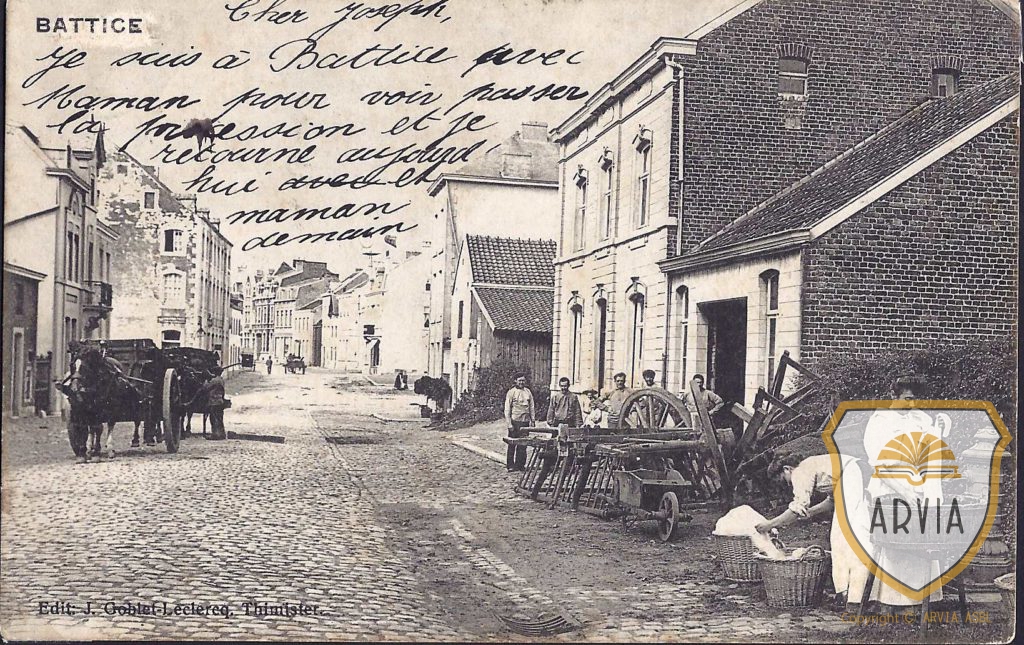 BATTICE
Cher Joseph,
Je suis à Battice avec
Maman pour voir passer
la procession et je
retourne aujourd'
hui avec et
maman
demain
Edit: J. Goblet-Leclercq, Thimister.
ARVIA
Copyright © ARVIA ASBL